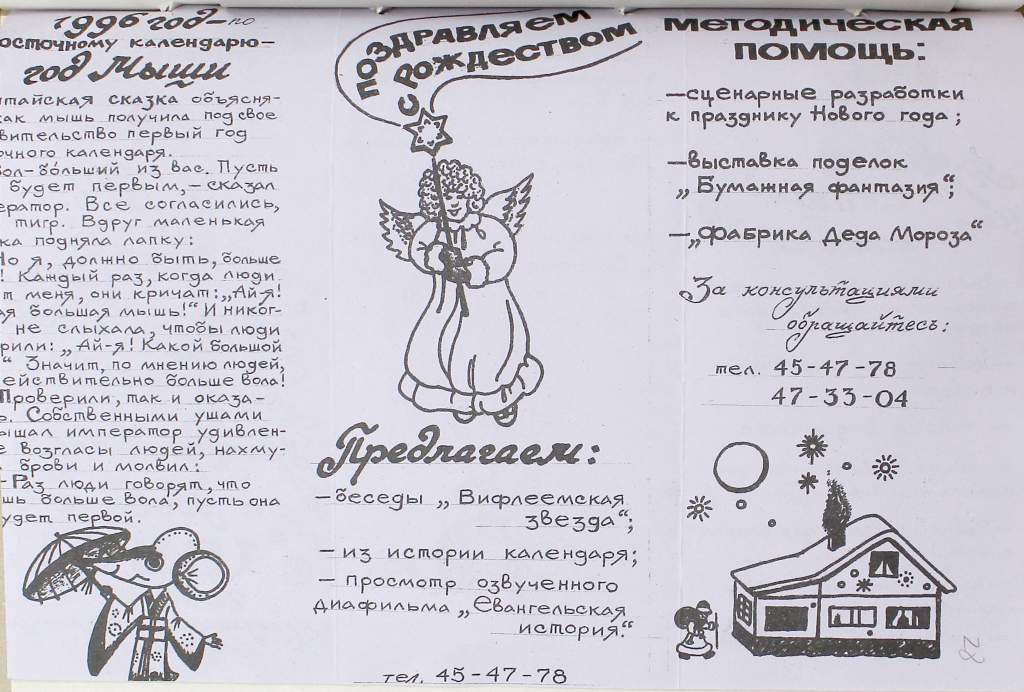 1996 год - по
осточному календарю-
год Мыши
тайская сказка объясня-
как мышь получила под свое
вительство первый год
очного календаря.
ол- бо́льший из вас. Пусть
будет первым, - сказал
ератор. Все согласились,
тигр. Вдруг маленькая
ка подняла лапку:
Но я, должно быть, больше
! Каждый раз, когда люди
т меня, они кричат: „Ай-я!
ая большая мышь!“ И никог-
не слыхала, чтобы люди
рили: „Ай-я! Какой большой
“ Значит, по мнению людей,
ействительно больше вола!
Проверили, так и оказа-
ь. Собственными ушами
ышал император удивлен-
е возгласы людей, нахму-
брови и молвил:
-Раз люди говорят, что
шь больше вола, пусть она
удет первой.
ПОЗДРАВЛЯЕМ
С РОЖДЕСТВОМ
Предлагаем:
- беседы „Вифлеемская
звезда“;
- из истории календаря;
- просмотр озвученного
диафильма „Евангельская
история.“
тел. 45-47-78
МЕТОДИЧЕСКАЯ
ПОМОЩЬ:
- сценарные разработки
к празднику Нового года;
- выставка поделок
„Бумажная фантазия“;
- „Фабрика Деда Мороза“
За консультациями
обращайтесь:
тел. 45-47-78
47-33-04
28